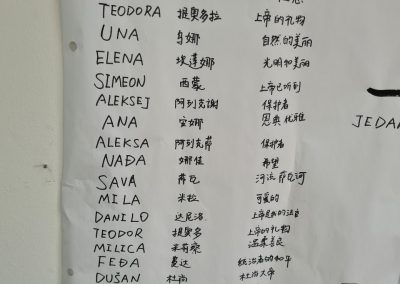 TEODORA 提奥多拉 上帝的礼物
UNA 乌娜 自然的美丽
ELENA 埃莲娜 光明和美丽
SIMEON 西蒙 上帝已听到
ALEKSEJ 阿列克谢 保护者
ANA 安娜 恩典 优雅
ALEKSA 阿列克萨 保护者
NAĐA 娜佳 希望
SAVA 萨瓦 河流 萨瓦河
MILA 米拉 可爱的
DANILO 达尼洛 上帝是我的法官
TEODOR 提奥多 上帝的礼物
MILICA 米莉察 温柔善良
FEĐA 费达 统治者的和平
DUŠAN 杜尚 杜尚大帝
JEDAN